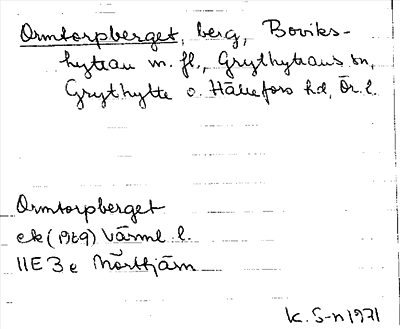 Ormtorpberget, berg, Boviks-
hyttan m. fl., Grythyttans sn,
Grythytte o. Hällefors hd, Ör. l.
Ormtorpberget
ek (1969) Värml. l.
11E 3e Mörttjärn
K. S-n 1971